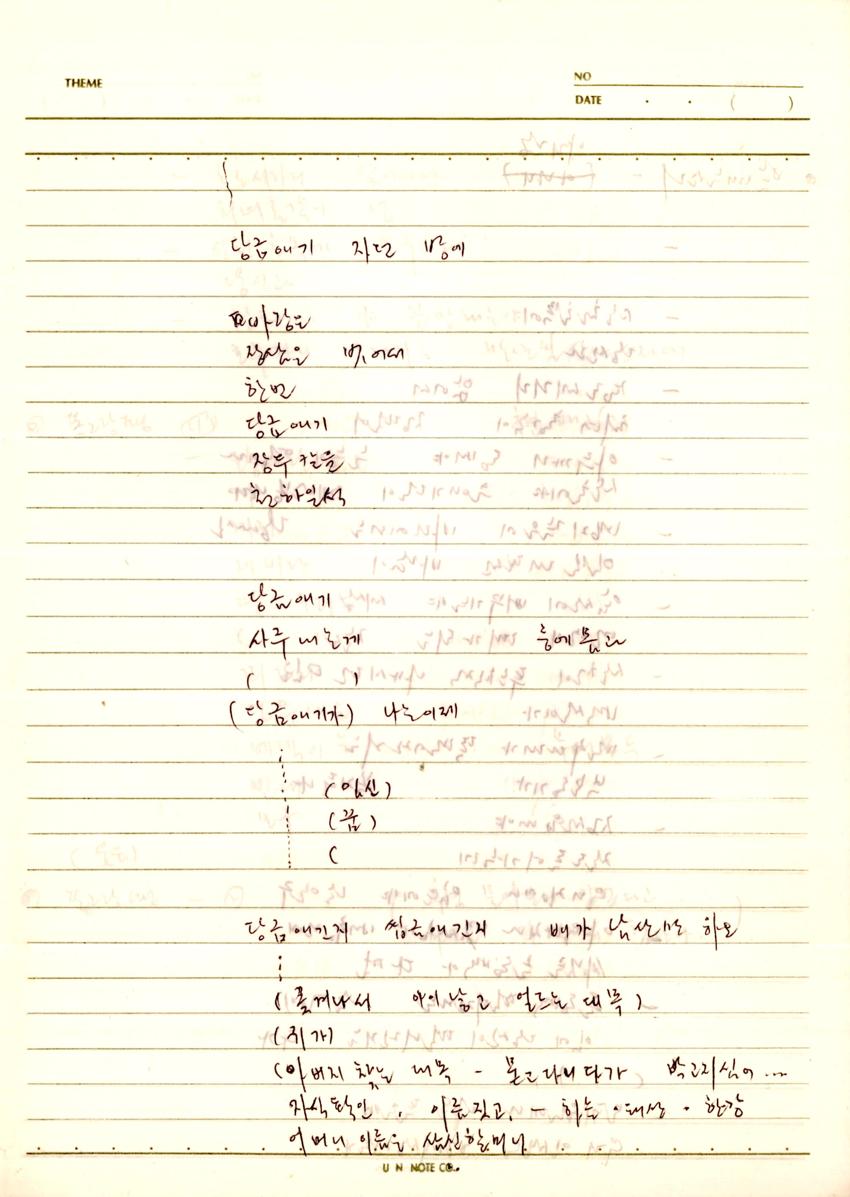 THEME
NO
DATE . . ( )
당금애기 자던 방에
장삼을 벗어매
한번
당금애기
장두칼을
당금애기
사주내논게 중에몸과
( )
(당금애기가) 나는이제
(임신)
(꿈)
(
당금애긴지 씽금애긴지 배가 남산만 하오
(쫓겨나서 아이낳고 얼르는 대목)
(귀가)
(아버지 찾는 대목 - 묻고다니다가 박고지심어 ...
자식확인, 이름짓고, - 하늘·태상·한강
어머니 이름은 삼신할머니
U N NOTE CO.